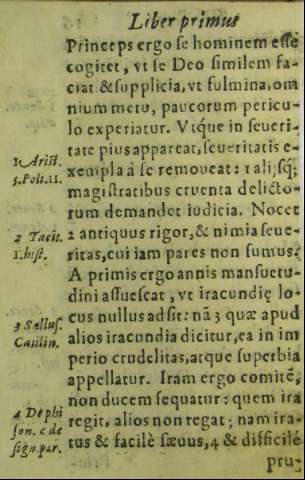 Liber primus
Princeps ergo se hominem esse
cogitet, vt se Deo similem fa-
ciat & supplicia, vt fulmina, om
nium metu, paucorum pericu-
lo experiatur. Vtq́ue in seueri-
tate pius appareat, seueritatis e-
xempla à se remoueat: 1 alijsq́;
magistratibus cruenta delicto-
rum demandet iudicia. Nocet
2 antiquus rigor, & nimia seue-
ritas, cui iam pares non sumus.
A primis ergo annis mansuetu-
dini assuescat, vt iracundię lo-
cus nullus adsit: nã 3 quæ apud
alios iracundia dicitur, ea in im
perio crudelitas, atque superbia
appellatur. Iram ergo comitē,
non ducem sequatur: quem ira
regit, alios non regat; nam ira-
tus & facilè sæuus, 4 & difficilè
pru-
1 Arist.
5. Poli. 11.
2 Tacit.
1. hist.
3 Sallus.
Catilin.
4 De phi
son. c de
sign. par.